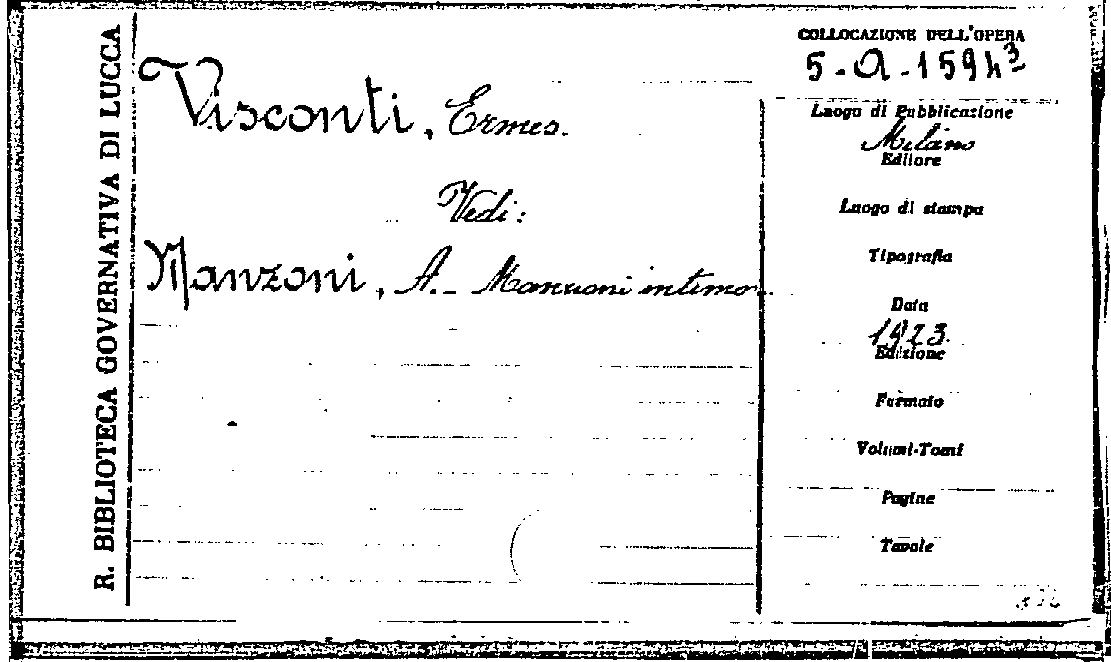 R. BIBLIOTECA GOVERNATIVA DI LUCCA
Visconti, Ermes.
Vedi:
Manzoni, A. - Manzoni intimo.
COLLOCAZIONE DELL'OPERA
Luogo di Pubblicazione
Milano
Editore
Luogo di stampa
Tipografia
Data
1923.
Edizione
Formato
Volumi-Tomi
Pagine
Tavole